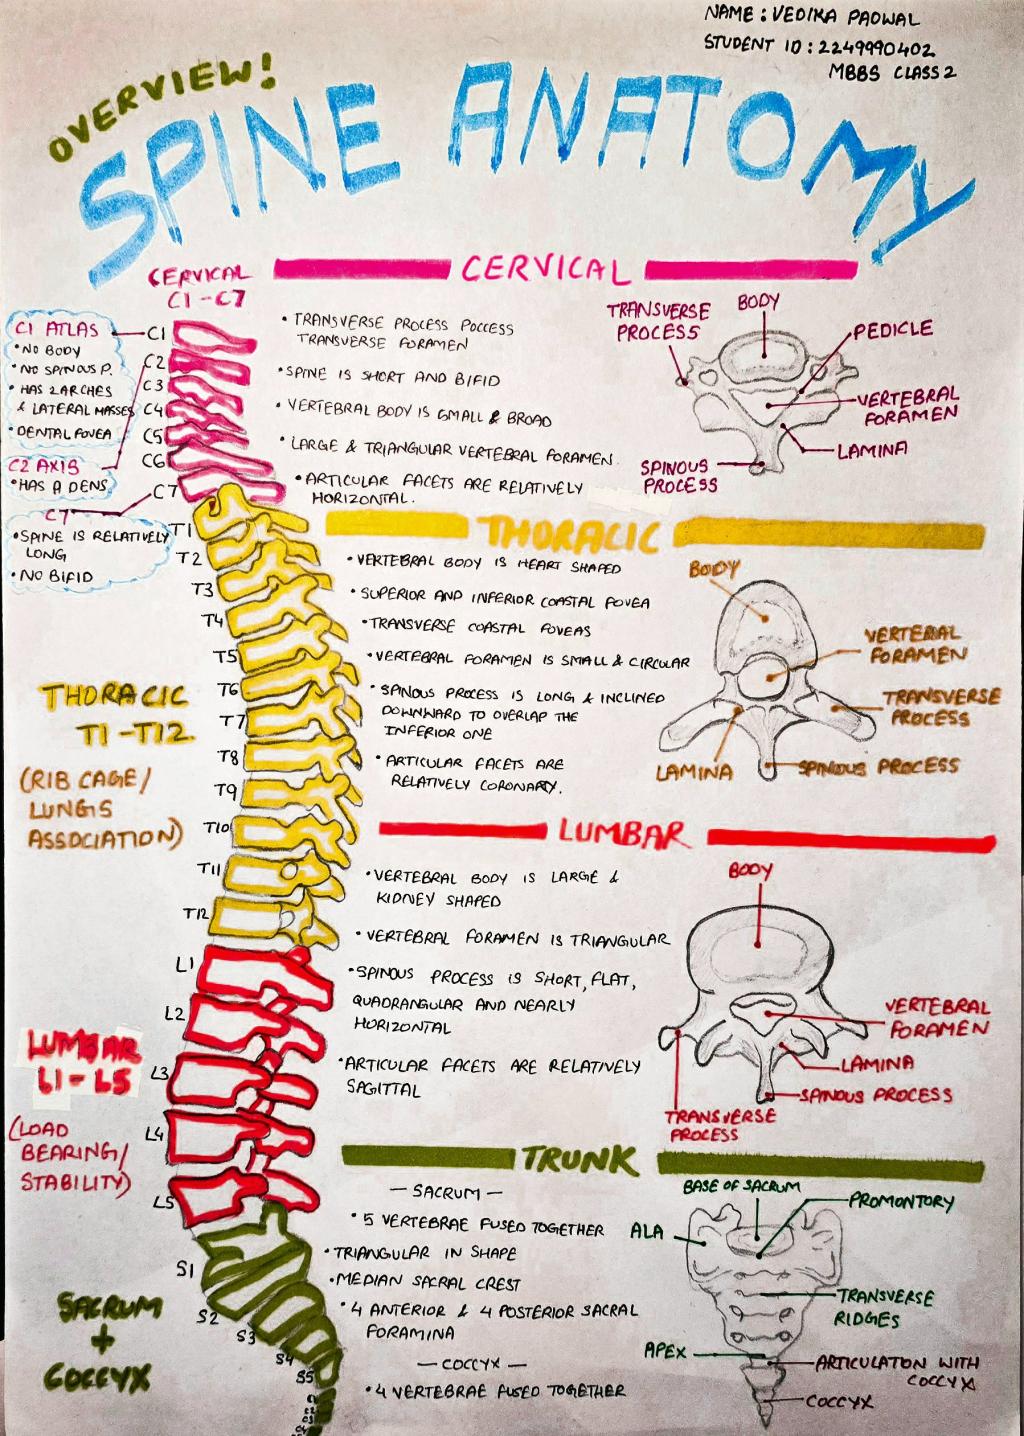 NAME : VEDIKA PADWAL
STUDENT ID : 2249990402
MBBS CLASS 2
OVERVIEW!
SPINE ANATOMY
CERVICAL
C1 - C7
C1 ATLAS
• NO BODY
• NO SPINOUS P.
• HAS 2 ARCHES
& LATERAL MASSES
• DENTAL FOVEA
C2 AXIS
• HAS A DENS
C7
• SPINE IS RELATIVELY
LONG
• NO BIFID
C1
C2
C3
C4
C5
C6
C7
CERVICAL
• TRANSVERSE PROCESS POCCESS
TRANSVERSE FORAMEN
• SPINE IS SHORT AND BIFID
• VERTEBRAL BODY IS SMALL & BROAD
• LARGE & TRIANGULAR VERTEBRAL FORAMEN.
• ARTICULAR FACETS ARE RELATIVELY
HORIZONTAL.
TRANSVERSE
PROCESS
BODY
PEDICLE
VERTEBRAL
FORAMEN
LAMINA
SPINOUS
PROCESS
THORACIC
T1 - T12
(RIB CAGE/
LUNGS
ASSOCIATION)
T1
T2
T3
T4
T5
T6
T7
T8
T9
T10
T11
T12
THORACIC
• VERTEBRAL BODY IS HEART SHAPED
• SUPERIOR AND INFERIOR COASTAL FOVEA
• TRANSVERSE COASTAL FOVEAS
• VERTEBRAL FORAMEN IS SMALL & CIRCULAR
• SPINOUS PROCESS IS LONG & INCLINED
DOWNWARD TO OVERLAP THE
INFERIOR ONE
• ARTICULAR FACETS ARE
RELATIVELY CORONARY.
BODY
VERTEBRAL
FORAMEN
TRANSVERSE
PROCESS
LAMINA
SPINOUS PROCESS
LUMBAR
L1 - L5
(LOAD
BEARING/
STABILITY)
L1
L2
L3
L4
L5
LUMBAR
• VERTEBRAL BODY IS LARGE &
KIDNEY SHAPED
• VERTEBRAL FORAMEN IS TRIANGULAR
• SPINOUS PROCESS IS SHORT, FLAT,
QUADRANGULAR AND NEARLY
HORIZONTAL
• ARTICULAR FACETS ARE RELATIVELY
SAGITTAL
BODY
VERTEBRAL
FORAMEN
LAMINA
SPINOUS PROCESS
TRANSVERSE
PROCESS
SACRUM
+
COCCYX
S1
S2
S3
S4
S5
TRUNK
— SACRUM —
• 5 VERTEBRAE FUSED TOGETHER
• TRIANGULAR IN SHAPE
• MEDIAN SACRAL CREST
• 4 ANTERIOR & 4 POSTERIOR SACRAL
FORAMINA
— COCCYX —
• 4 VERTEBRAE FUSED TOGETHER
BASE OF SACRUM
PROMONTORY
ALA
TRANSVERSE
RIDGES
APEX
ARTICULATION WITH
COCCYX
COCCYX